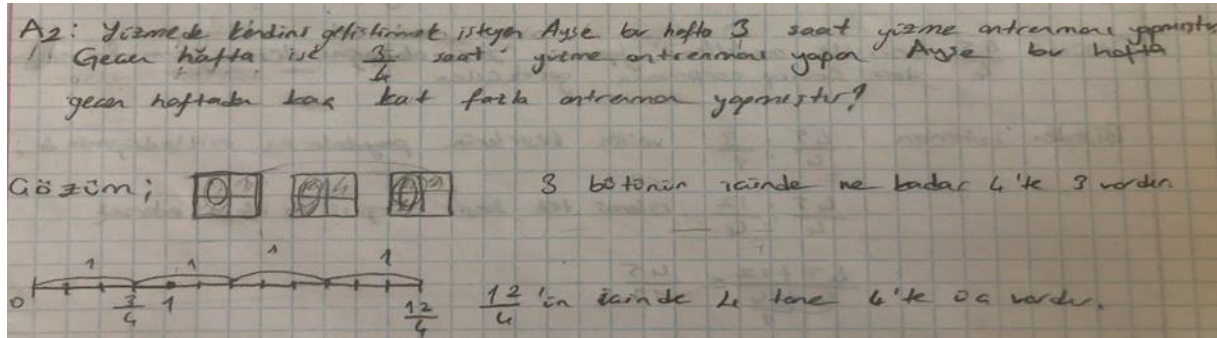 A2: Yüzmede kendini geliştirmek isteyen Ayşe bu hafta 3 saat yüzme antrenmanı yapmıştır.
Geçen hafta ise 3/4 saat yüzme antrenmanı yapan Ayşe bu hafta
geçen haftadan kaç kat fazla antrenman yapmıştır?
Çözüm; 3 bütünün içinde ne kadar 4'te 3 vardır.
1 1 1 1
0 3/4 1 12/4 12/4 'ün içinde 4 tane 4'te üç vardır.